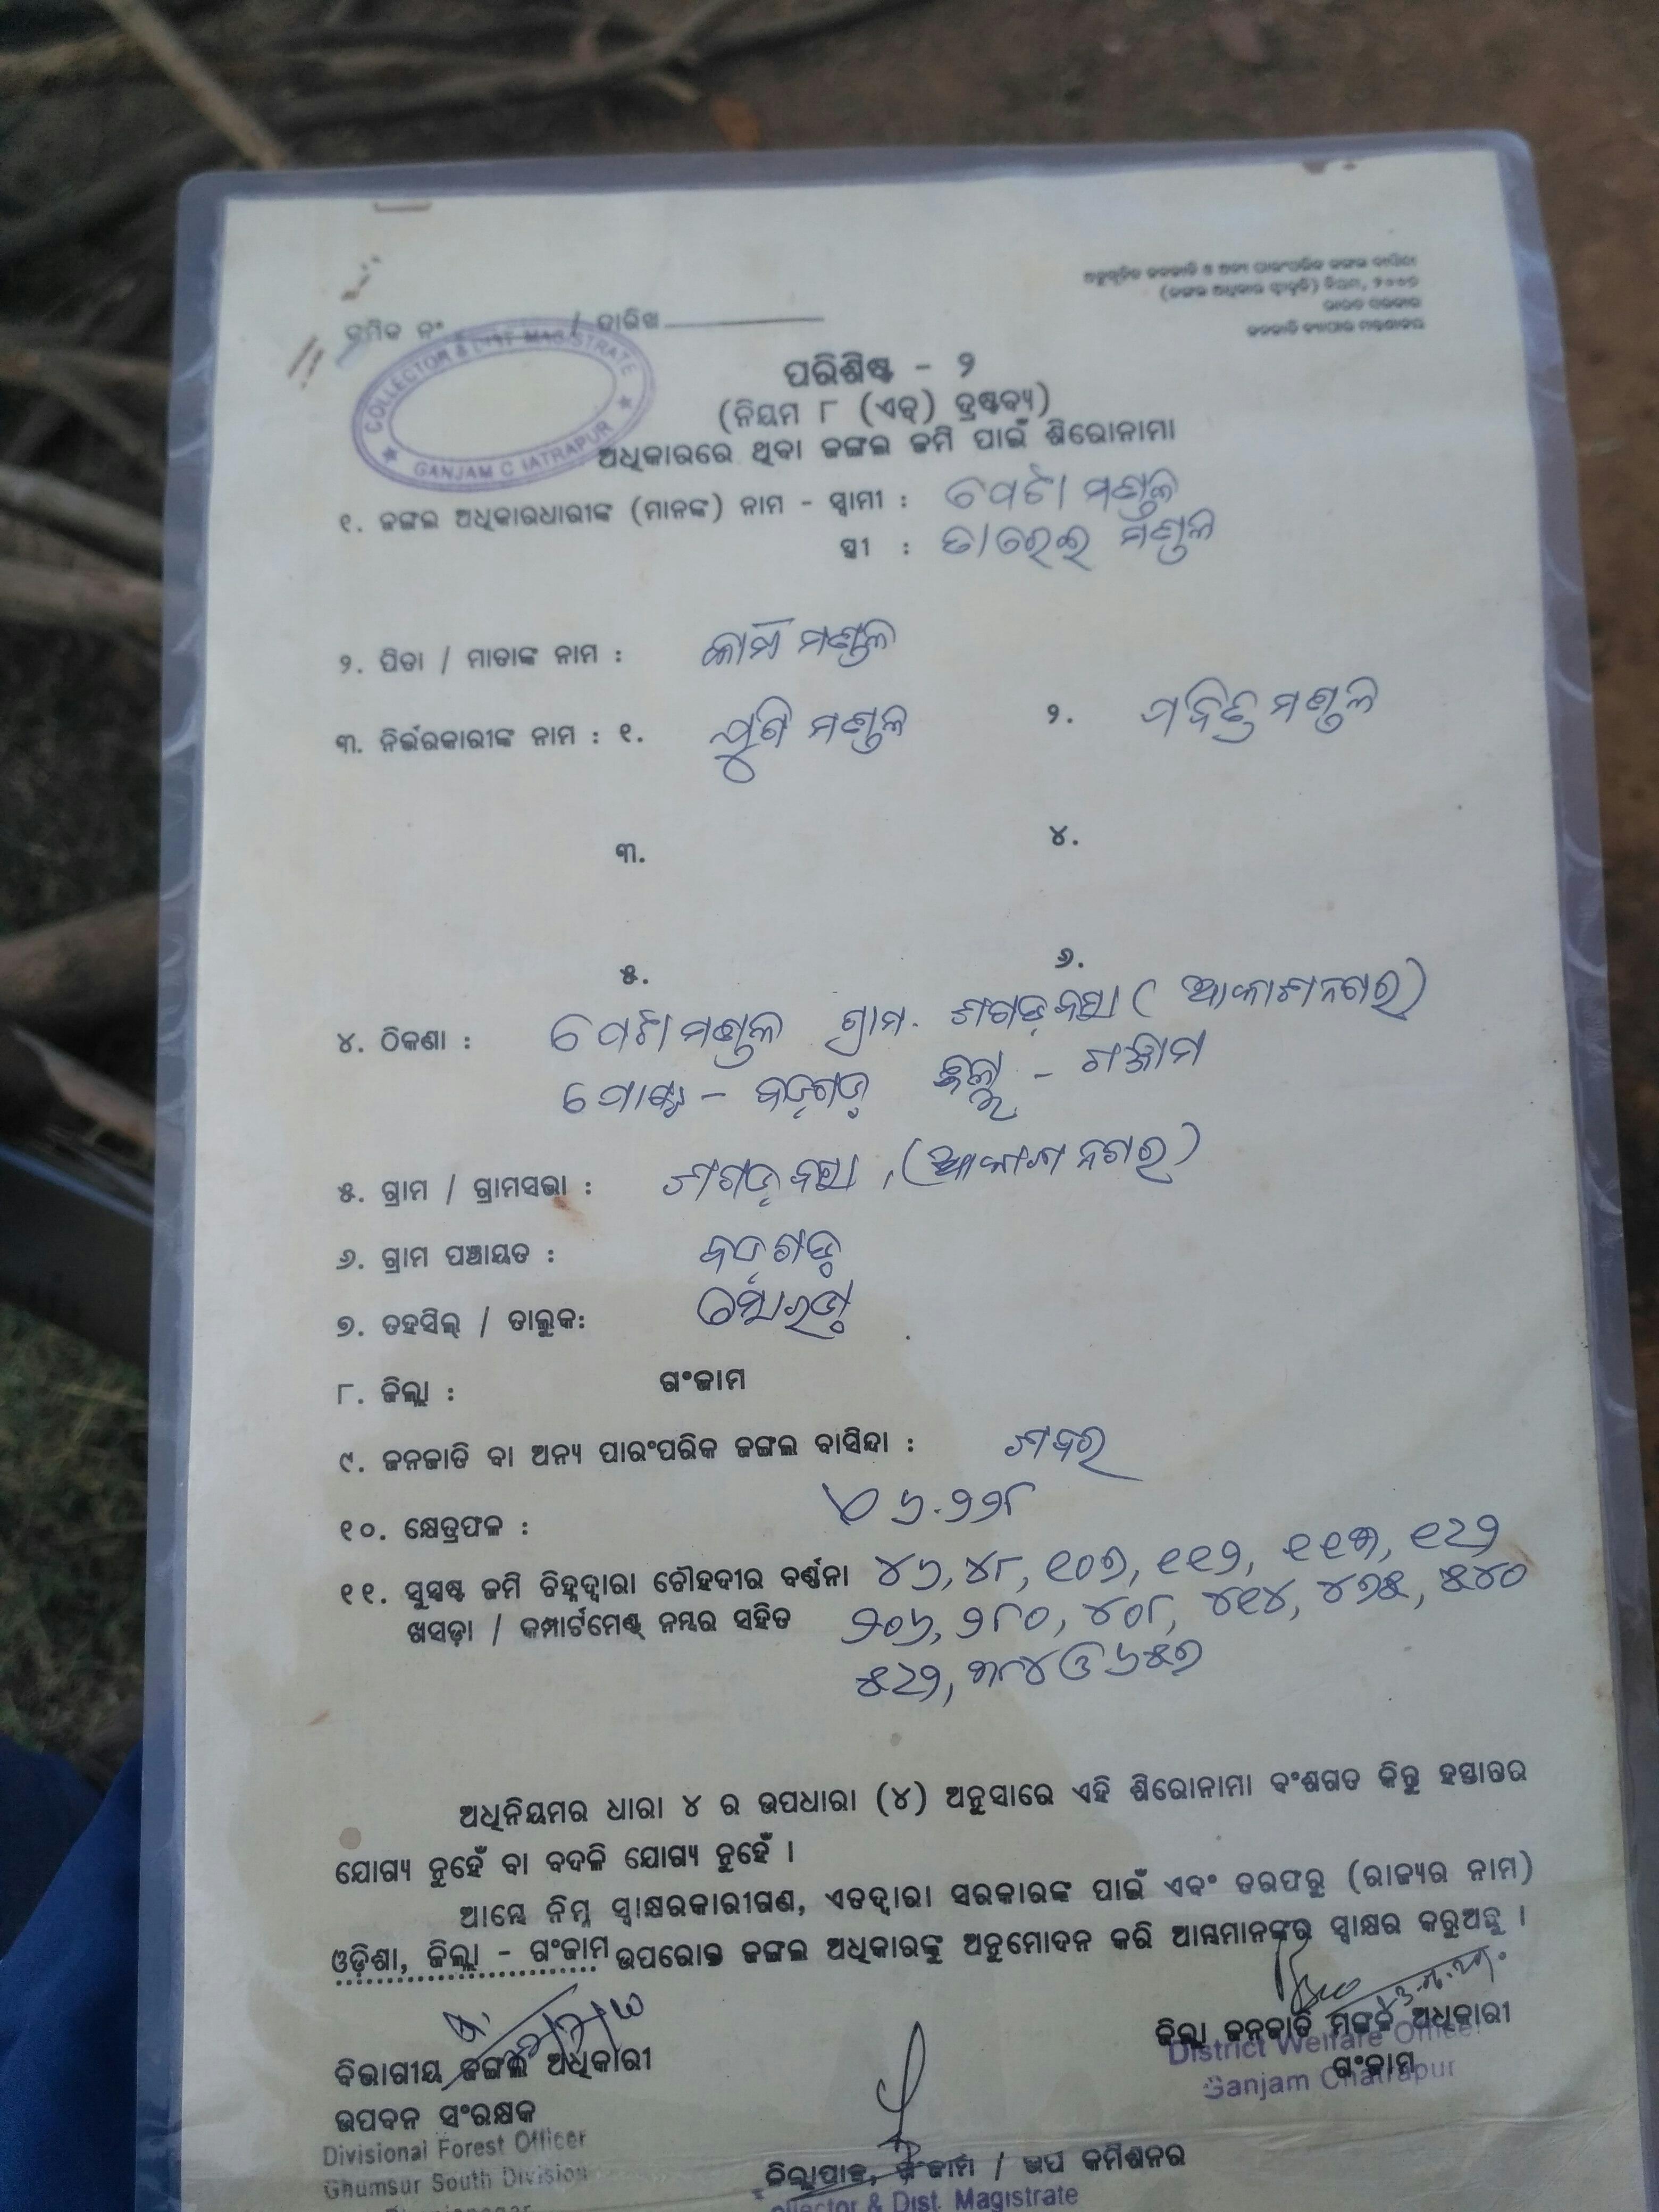 ଅନୁସୂଚିତ ଜନଜାତି ଓ ଅନ୍ୟ ପାରଂପରିକ ଜଙ୍ଗଲ ବାସିନ୍ଦା
(ଜଙ୍ଗଲ ଅଧିକାର ସ୍ୱୀକୃତି) ନିୟମ, ୨୦୦୭
ଭାରତ ସରକାର
ଜନଜାତି ବ୍ୟାପାର ମନ୍ତ୍ରଣାଳୟ
କ୍ରମିକ ନଂ / ତାରିଖ
COLLECTOR & DIST MAGISTRATE
GANJAM
ପରିଶିଷ୍ଟ - ୨
(ନିୟମ ୮ (ଏଚ୍) ଦ୍ରଷ୍ଟବ୍ୟ)
ଅଧିକାରରେ ଥିବା ଜଙ୍ଗଲ ଜମି ପାଇଁ ଶିରୋନାମା
୧. ଜଙ୍ଗଲ ଅଧିକାରଧାରୀଙ୍କ (ମାନଙ୍କ) ନାମ - ସ୍ୱାମୀ : ମଣ୍ଡଳ
ସ୍ତ୍ରୀ : ମଣ୍ଡଳ
୨. ପିତା / ମାତାଙ୍କ ନାମ : ମଣ୍ଡଳ
୩. ନିର୍ଭରକାରୀଙ୍କ ନାମ : ୧. ମଣ୍ଡଳ ୨. ମଣ୍ଡଳ
୩. ୪.
୫. ୬.
୪. ଠିକଣା : ମଣ୍ଡଳ ଗ୍ରାମ. (ଆକାଶନଗର)
ପୋଷ୍ଟ - ବଡ଼ଗଡ଼ ଜିଲ୍ଲା - ଗଞ୍ଜାମ
୫. ଗ୍ରାମ / ଗ୍ରାମସଭା : (ଆକାଶନଗର)
୬. ଗ୍ରାମ ପଞ୍ଚାୟତ : ବଡ଼ଗଡ଼
୭. ତହସିଲ୍ / ତାଲୁକ: ସୋରଡ଼
୮. ଜିଲ୍ଲା : ଗଂଜାମ
୯. ଜନଜାତି ବା ଅନ୍ୟ ପାରଂପରିକ ଜଙ୍ଗଲ ବାସିନ୍ଦା : ଶବର
୧୦. କ୍ଷେତ୍ରଫଳ : ୬.୨୨୮
୧୧. ସୁସ୍ପଷ୍ଟ ଜମି ଚିହ୍ନଦ୍ୱାରା ଚୌହଦୀର ବର୍ଣ୍ଣନା ୪୬, ୪୮, ୧୦୭, ୧୧୨, ୧୧୩, ୧୨୨
ଖସଡ଼ା / କମ୍ପାର୍ଟମେଣ୍ଟ ନମ୍ବର ସହିତ ୨୦୬, ୨୮୦, ୪୦୮, ୪୧୪, ୪୭୫, ୫୪୦
୫୨୨, ୩୮୪ ଓ ୬୫୭
ଅଧିନିୟମର ଧାରା ୪ ର ଉପଧାରା (୪) ଅନୁସାରେ ଏହି ଶିରୋନାମା ବଂଶଗତ କିନ୍ତୁ ହସ୍ତାନ୍ତର
ଯୋଗ୍ୟ ନୁହେଁ ବା ବଦଳି ଯୋଗ୍ୟ ନୁହେଁ ।
ଆମ୍ଭେ ନିମ୍ନ ସ୍ୱାକ୍ଷରକାରୀଗଣ, ଏତଦ୍ୱାରା ସରକାରଙ୍କ ପାଇଁ ଏବଂ ତରଫରୁ (ରାଜ୍ୟର ନାମ)
ଓଡ଼ିଶା, ଜିଲ୍ଲା - ଗଂଜାମ ଉପରୋକ୍ତ ଜଙ୍ଗଲ ଅଧିକାରକୁ ଅନୁମୋଦନ କରି ଆମ୍ଭମାନଙ୍କର ସ୍ୱାକ୍ଷର କରୁଅଛୁ ।
ବିଭାଗୀୟ ଜଙ୍ଗଲ ଅଧିକାରୀ
ଉପବନ ସଂରକ୍ଷକ
Divisional Forest Officer
Ghumsur South Division
ଜିଲ୍ଲା ଜନଜାତି ମଙ୍ଗଳ ଅଧିକାରୀ
ଗଂଜାମ
District Welfare Officer
Ganjam Chatrapur
ଜିଲ୍ଲାପାଳ, ଗଂଜାମ / ଉପ କମିଶନର
Collector & Dist. Magistrate